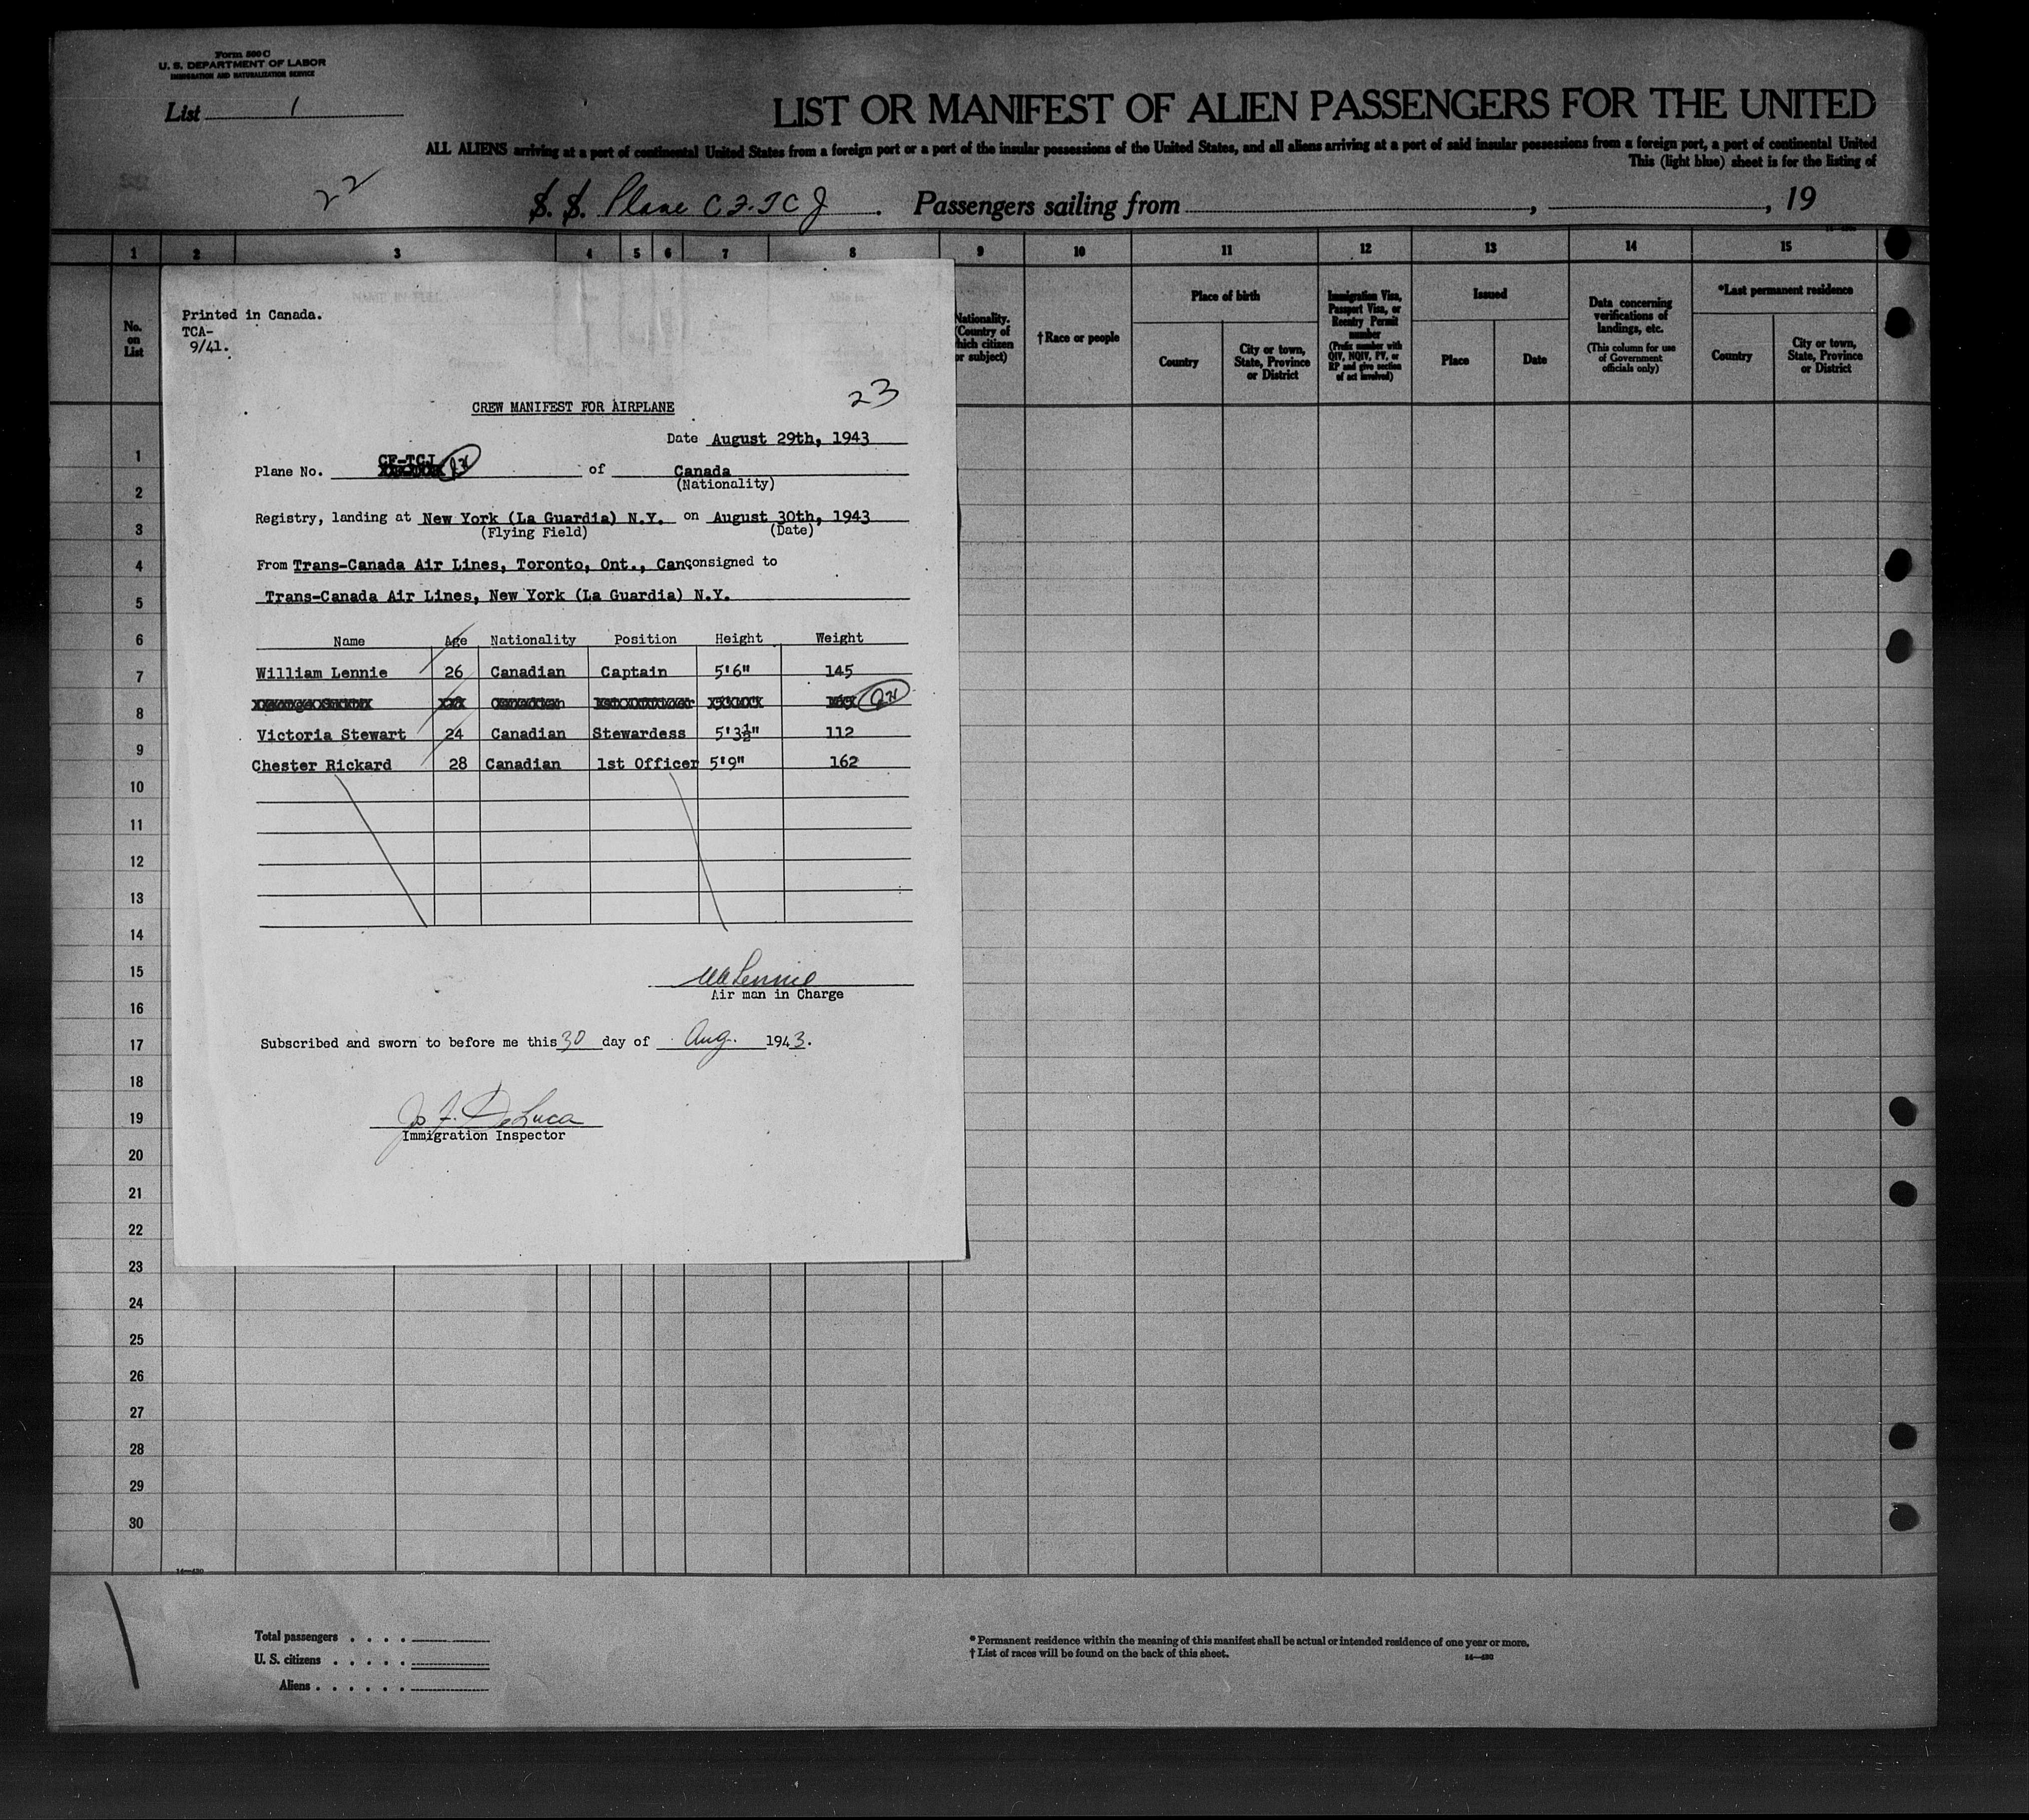 Form 500 C
U. S. DEPARTMENT OF LABOR
IMMIGRATION AND NATURALIZATION SERVICE
List 1
LIST OR MANIFEST OF ALIEN PASSENGERS FOR THE UNITED
ALL ALIENS arriving at a port of continental United States from a foreign port or a port of the insular possessions of the United States, and all aliens arriving at a port of said insular possessions from a foreign port, a port of continental United
This (light blue) sheet is for the listing of
22
S. S. Plane CF-TCJ . Passengers sailing from , , 19
1 2 3 4 5 6 7 8 9 10 11 12 13 14 15
No. on List
Nationality. (Country of which citizen or subject)
† Race or people
Place of birth
Country
City or town, State, Province or District
Immigration Visa, Passport Visa, or Reentry Permit number
(Prefix number with QIV, NQIV, PV, or RP and give section of act involved)
Issued
Place
Date
Data concerning verifications of landings, etc.
(This column for use of Government officials only)
*Last permanent residence
Country
City or town, State, Province or District
Printed in Canada.
TCA-
9/41.
23
CREW MANIFEST FOR AIRPLANE
Date August 29th, 1943
Plane No. CF-TCJ of Canada
(Nationality)
Registry, landing at New York (La Guardia) N.Y. on August 30th, 1943
(Flying Field) (Date)
From Trans-Canada Air Lines, Toronto, Ont., Can consigned to
Trans-Canada Air Lines, New York (La Guardia) N.Y.
Name Age Nationality Position Height Weight
William Lennie 26 Canadian Captain 5'6" 145
Victoria Stewart 24 Canadian Stewardess 5'3½" 112
Chester Rickard 28 Canadian 1st Officer 5'9" 162
WA Lennie
Air man in Charge
Subscribed and sworn to before me this 30 day of Aug. 1943.
Jo F. DeLuca
Immigration Inspector
1
2
3
4
5
6
7
8
9
10
11
12
13
14
15
16
17
18
19
20
21
22
23
24
25
26
27
28
29
30
14—430
Total passengers . . . .
U. S. citizens . . . . .
Aliens . . . . . .
* Permanent residence within the meaning of this manifest shall be actual or intended residence of one year or more.
† List of races will be found on the back of this sheet.
14—430